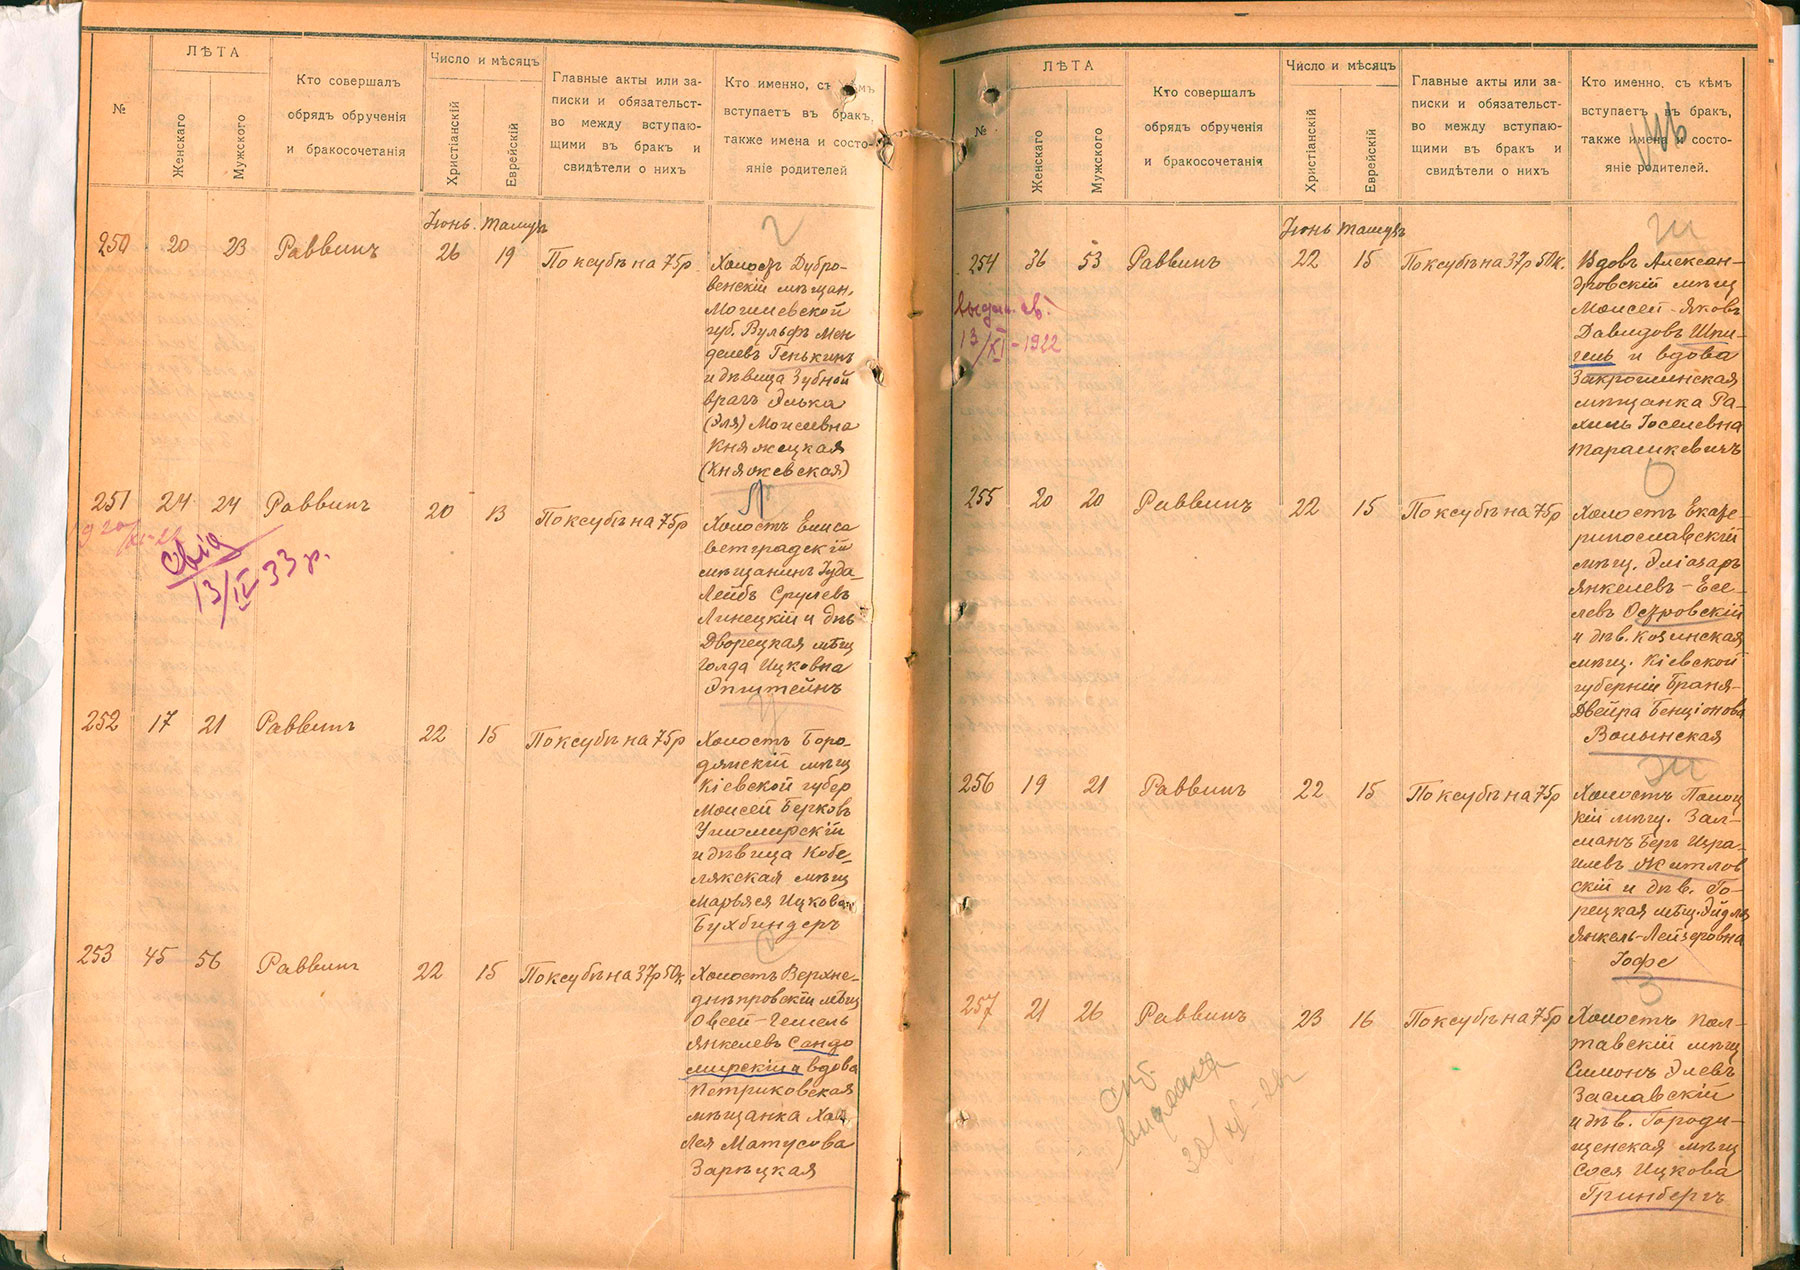 №
ЛѢТА
Женскаго
Мужского
Кто совершалъ
обрядъ обрученія
и бракосочетанія
Число и мѣсяцъ
Христіанскій
Еврейскій
Главные акты или за-
писки и обязательст-
во между вступаю-
щими въ бракъ и
свидѣтели о нихъ
Кто именно, съ кѣмъ
вступаетъ въ бракъ,
также имена и состо-
яніе родителей
Іюнь. Тамузъ
250 20 23 Раввинъ 26 19 По ксубѣ на 75р
Холостъ Дубро-
венскій мѣщан.
Могилевской
губ. Вульфъ Мен
делевъ Генькинъ
и дѣвица Зубной
врачъ Элька
(Эля) Моисеевна
Княжецкая
(Княжевская)
251 24 24 Раввинъ 20 13 По ксубѣ на 75р
13/IV 33 р.
Л
Холостъ Елиса
ветградскій
мѣщанинъ Іуда-
Лейбъ Срулевъ
Линецкій и дѣв
Дворецкая мѣщ
Голда Ицковна
Эпштейнъ
252 17 21 Раввинъ 22 15 По ксубѣ на 75р
Холостъ Боро-
дянскій мѣщ
Кіевской губер
Моисей Берковъ
Ушомирскій
и дѣвица Кобе-
лякская мѣщ
Марьяся Ицкова
Бухбиндеръ
253 45 56 Раввинъ 22 15 По ксубѣ на 37р 50к.
С
Холостъ Верхне-
днѣпровскій мѣщ
Овсей-Гешель
Янкелевъ Сандо
мирскій и вдова
Петриковская
мѣщанка Хая
Лея Матусова
Зарѣцкая
№
ЛѢТА
Женскаго
Мужского
Кто совершалъ
обрядъ обрученія
и бракосочетанія
Число и мѣсяцъ
Христіанскій
Еврейскій
Главные акты или за-
писки и обязательст-
во между вступаю-
щими въ бракъ и
свидѣтели о нихъ
Кто именно, съ кѣмъ
вступаетъ въ бракъ,
также имена и состо-
яніе родителей.
Іюнь Тамузъ
254 36 53 Раввинъ 22 15 По ксубѣ на 37р 50к.
выдан. св.
13/XI-1922
Вдовъ Алексан-
дровскій мѣщ
Моисей-Яковъ
Давидовъ Шпи-
гель и вдова
Закрочимская
мѣщанка Ра-
хиль Іоселевна
Тарашкевичъ
255 20 20 Раввинъ 22 15 По ксубѣ на 75р
О
Холостъ Екате-
ринославскій
мѣщ. Эліазаръ
Янкелевъ-Есе-
левъ Островскій
и дѣв. Козинская
мѣщ. Кіевской
губерніи Браня-
Двейра Бенціонова
Волынская
256 19 21 Раввинъ 22 15 По ксубѣ на 75р
Ж
Холостъ Полоц
кій мѣщ. Зал-
манъ Беръ Изра-
илевъ Житлов
скій и дѣв. Го-
рецкая мѣщ. Эйдля
Янкель-Лейзеровна
Іофе
257 21 26 Раввинъ 23 16 По ксубѣ на 75р
З
Холостъ Пол-
тавскій мѣщ
Симонъ Элевъ
Заславскій
и дѣв. Городи-
щенская мѣщ
Сося Ицкова
Гринбергъ